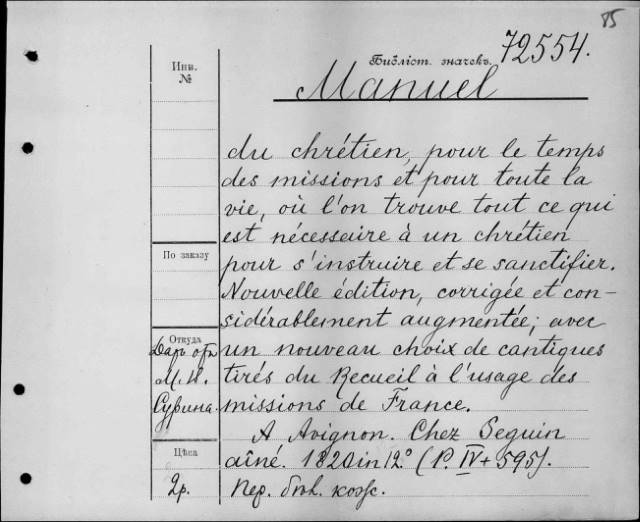 85
Библіот. значекъ 72554.
Инв.
№
Manuel
du chrétien, pour le temps
des missions et pour toute la
vie, où l'on trouve tout ce qui
est nécessaire à un chrétien
По заказу
pour s'instruire et se sanctifier.
Nouvelle édition, corrigée et con-
sidérablement augmentée; avec
Откуда
Даръ отъ
un nouveau choix de cantiques
М. И.
tirés du Recueil à l'usage des
Сурина.
missions de France.
A Avignon. Chez Seguin
Цѣна
aîné. 1820 in 12° (P. IV + 595).
2р.
Пер. бѣл. кож.